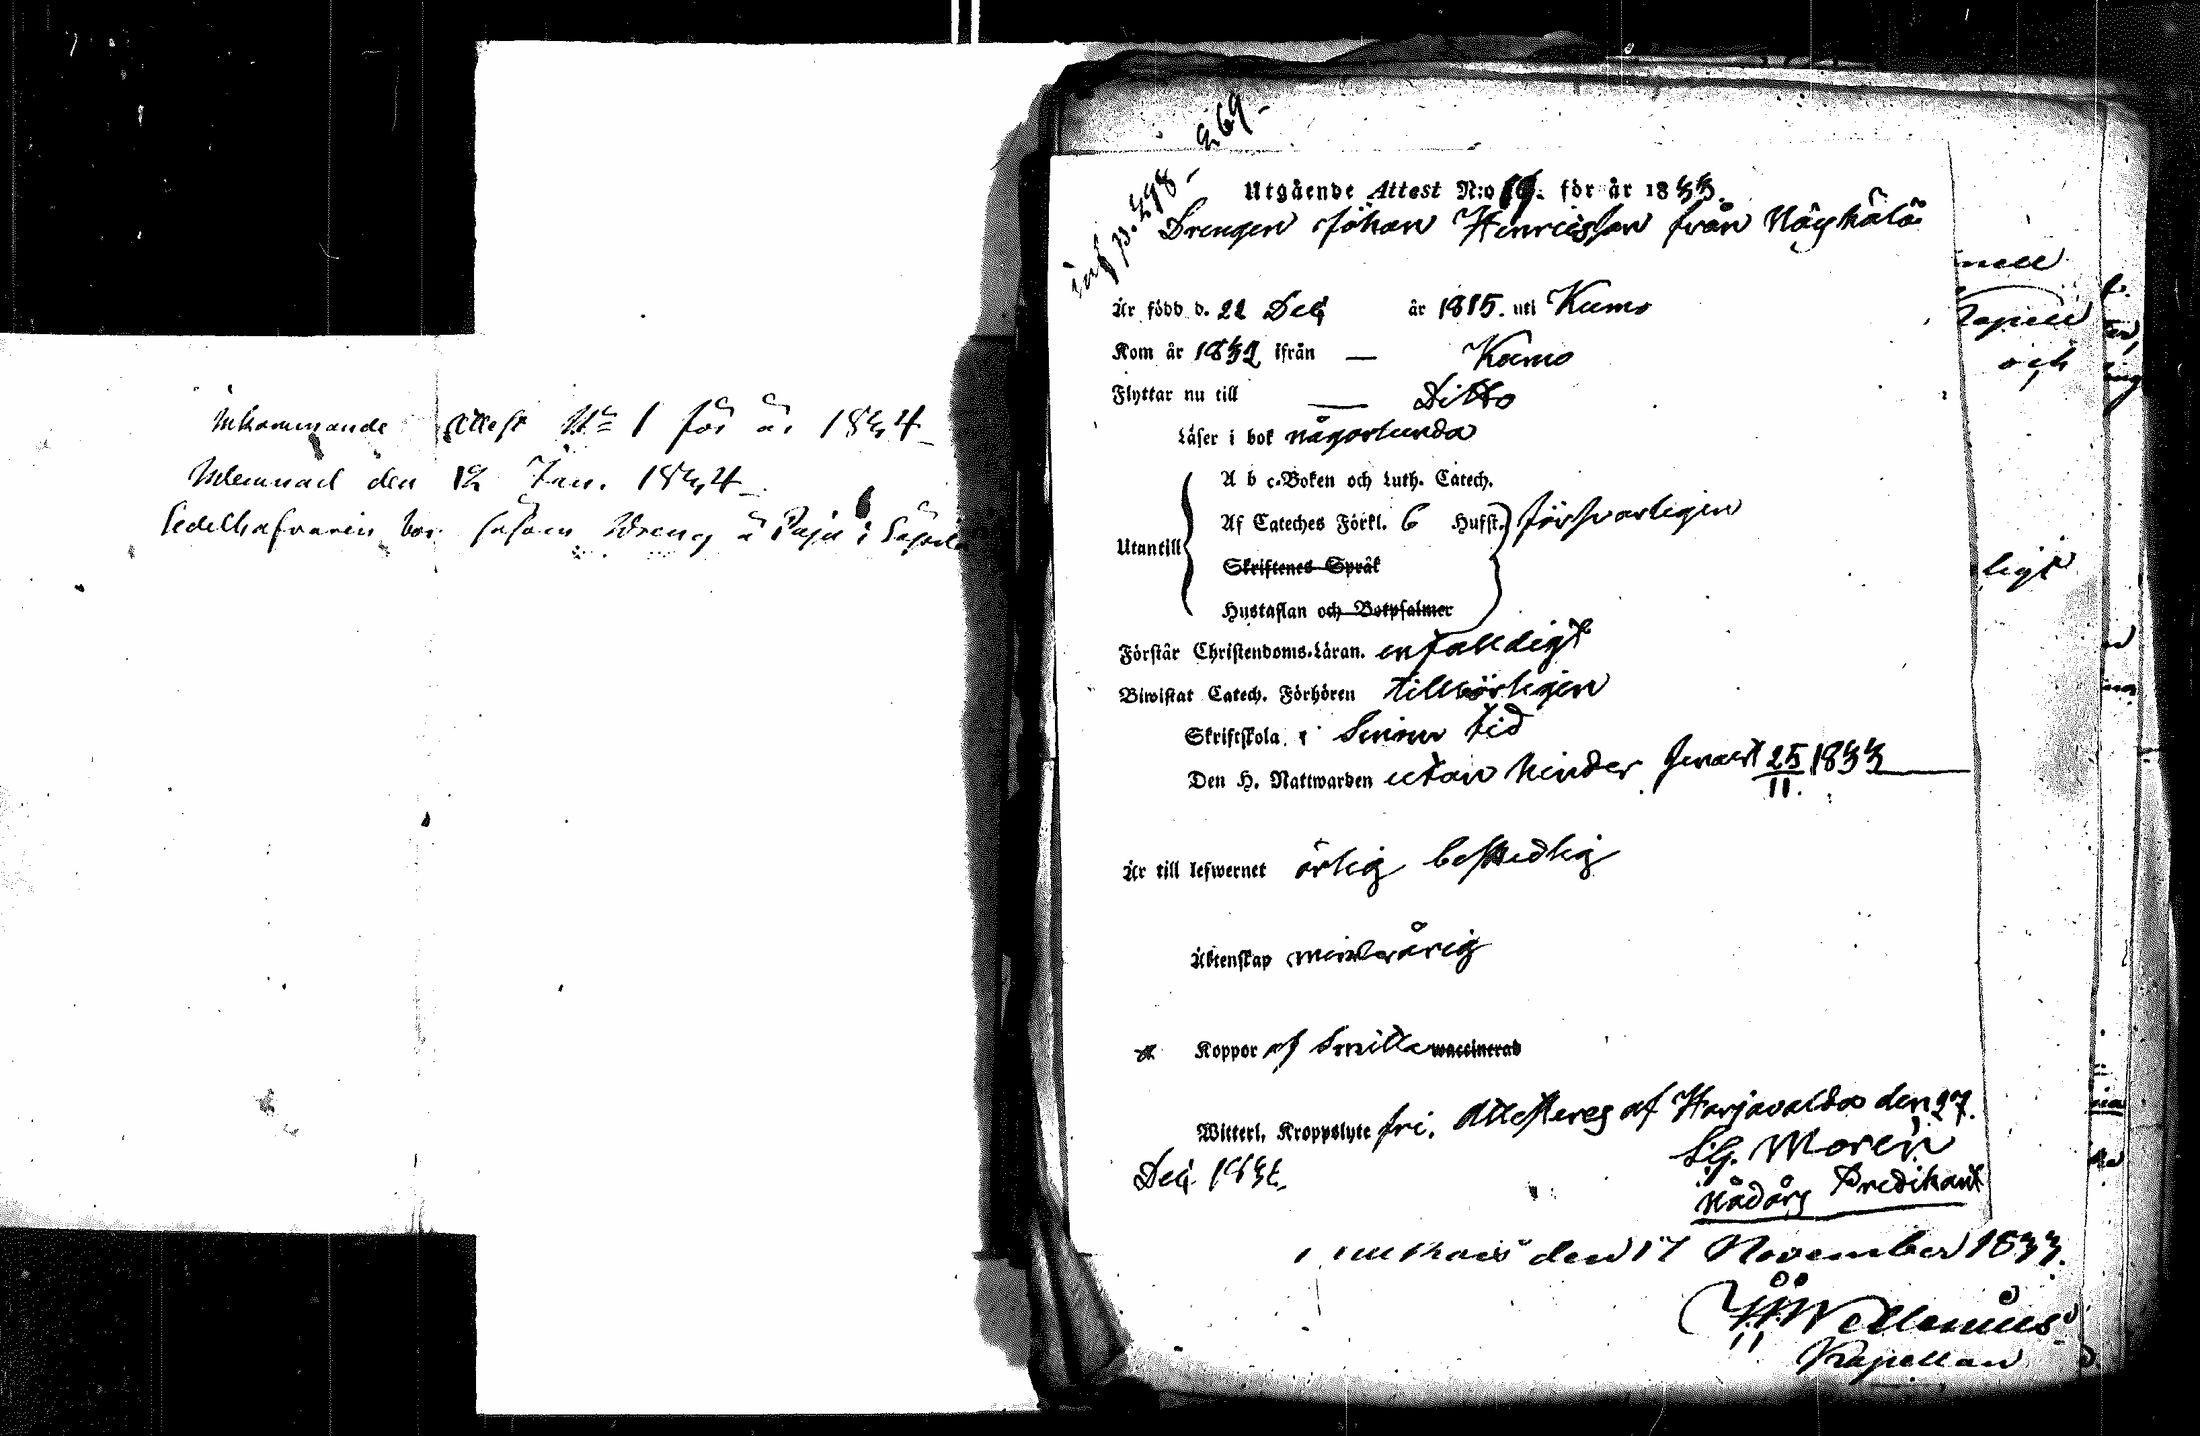 Inkommande Attest No 1 för år 1834
Inlemnad den 12 Jan. 1834
Sedelhafvaren bor såsom Dreng å Paju i
269
inf p. 298
Utgående Attest N:o 19. för år 1833.
Drengen Johan Henricsson från Näyhälä
Är född d. 22 Dec. år 1815. uti Kumo
Kom år 1832 ifrån — Kumo
Flyttar nu till — Ditto
Läser i bok någorlunda
A b c-Boken och Luth. Catech.
Af Cateches Förkl. 6 Hufst. försvarligen
Utantill
Skriftenes Språk
Hustaflan och Bokpsalmer
Förstår Christendoms-Läran. enfalldigt
Biwistat Catech. Förhören tillbörligen
Skriftskola i sinom tid
Den H. Nattwarden utan hinder senast 25/11. 1833
Är till lefwernet ärlig beskedlig
Äktenskap minderårig
Koppor af Smitta waccinerad
Witterl. Kroppslyte fri. Attesteras af Harjavalda den 27.
Dec. 183
S.G. Moren
Nådårs Predikant
den 17 November 1833.
Wellenius
Kapellan
nell
Kapell
och
ligt